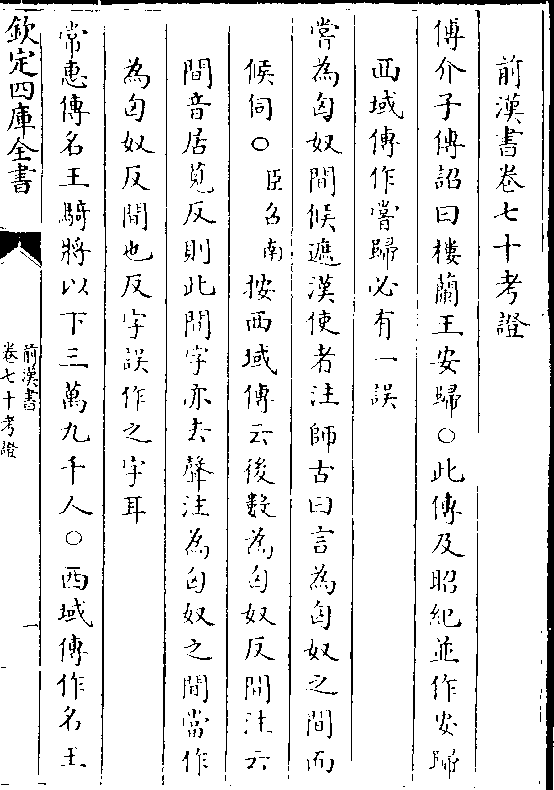 前漢書卷七十考證
傅介子傳詔曰樓蘭王安歸○此傳及昭紀並作安歸
西域傳作嘗歸必有一誤
常為匈奴間候遮漢使者注師古曰言為匈奴之間而
候伺○臣召南按西域傳云後數為匈奴反間注云
間音居莧反則此間字亦去聲注為匈奴之間當作
為匈奴反間也反字誤作之字耳
常惠傳名王騎將以下三萬九千人○西域傳作名王
欽定四庫全書
前漢書
卷七十考證
一